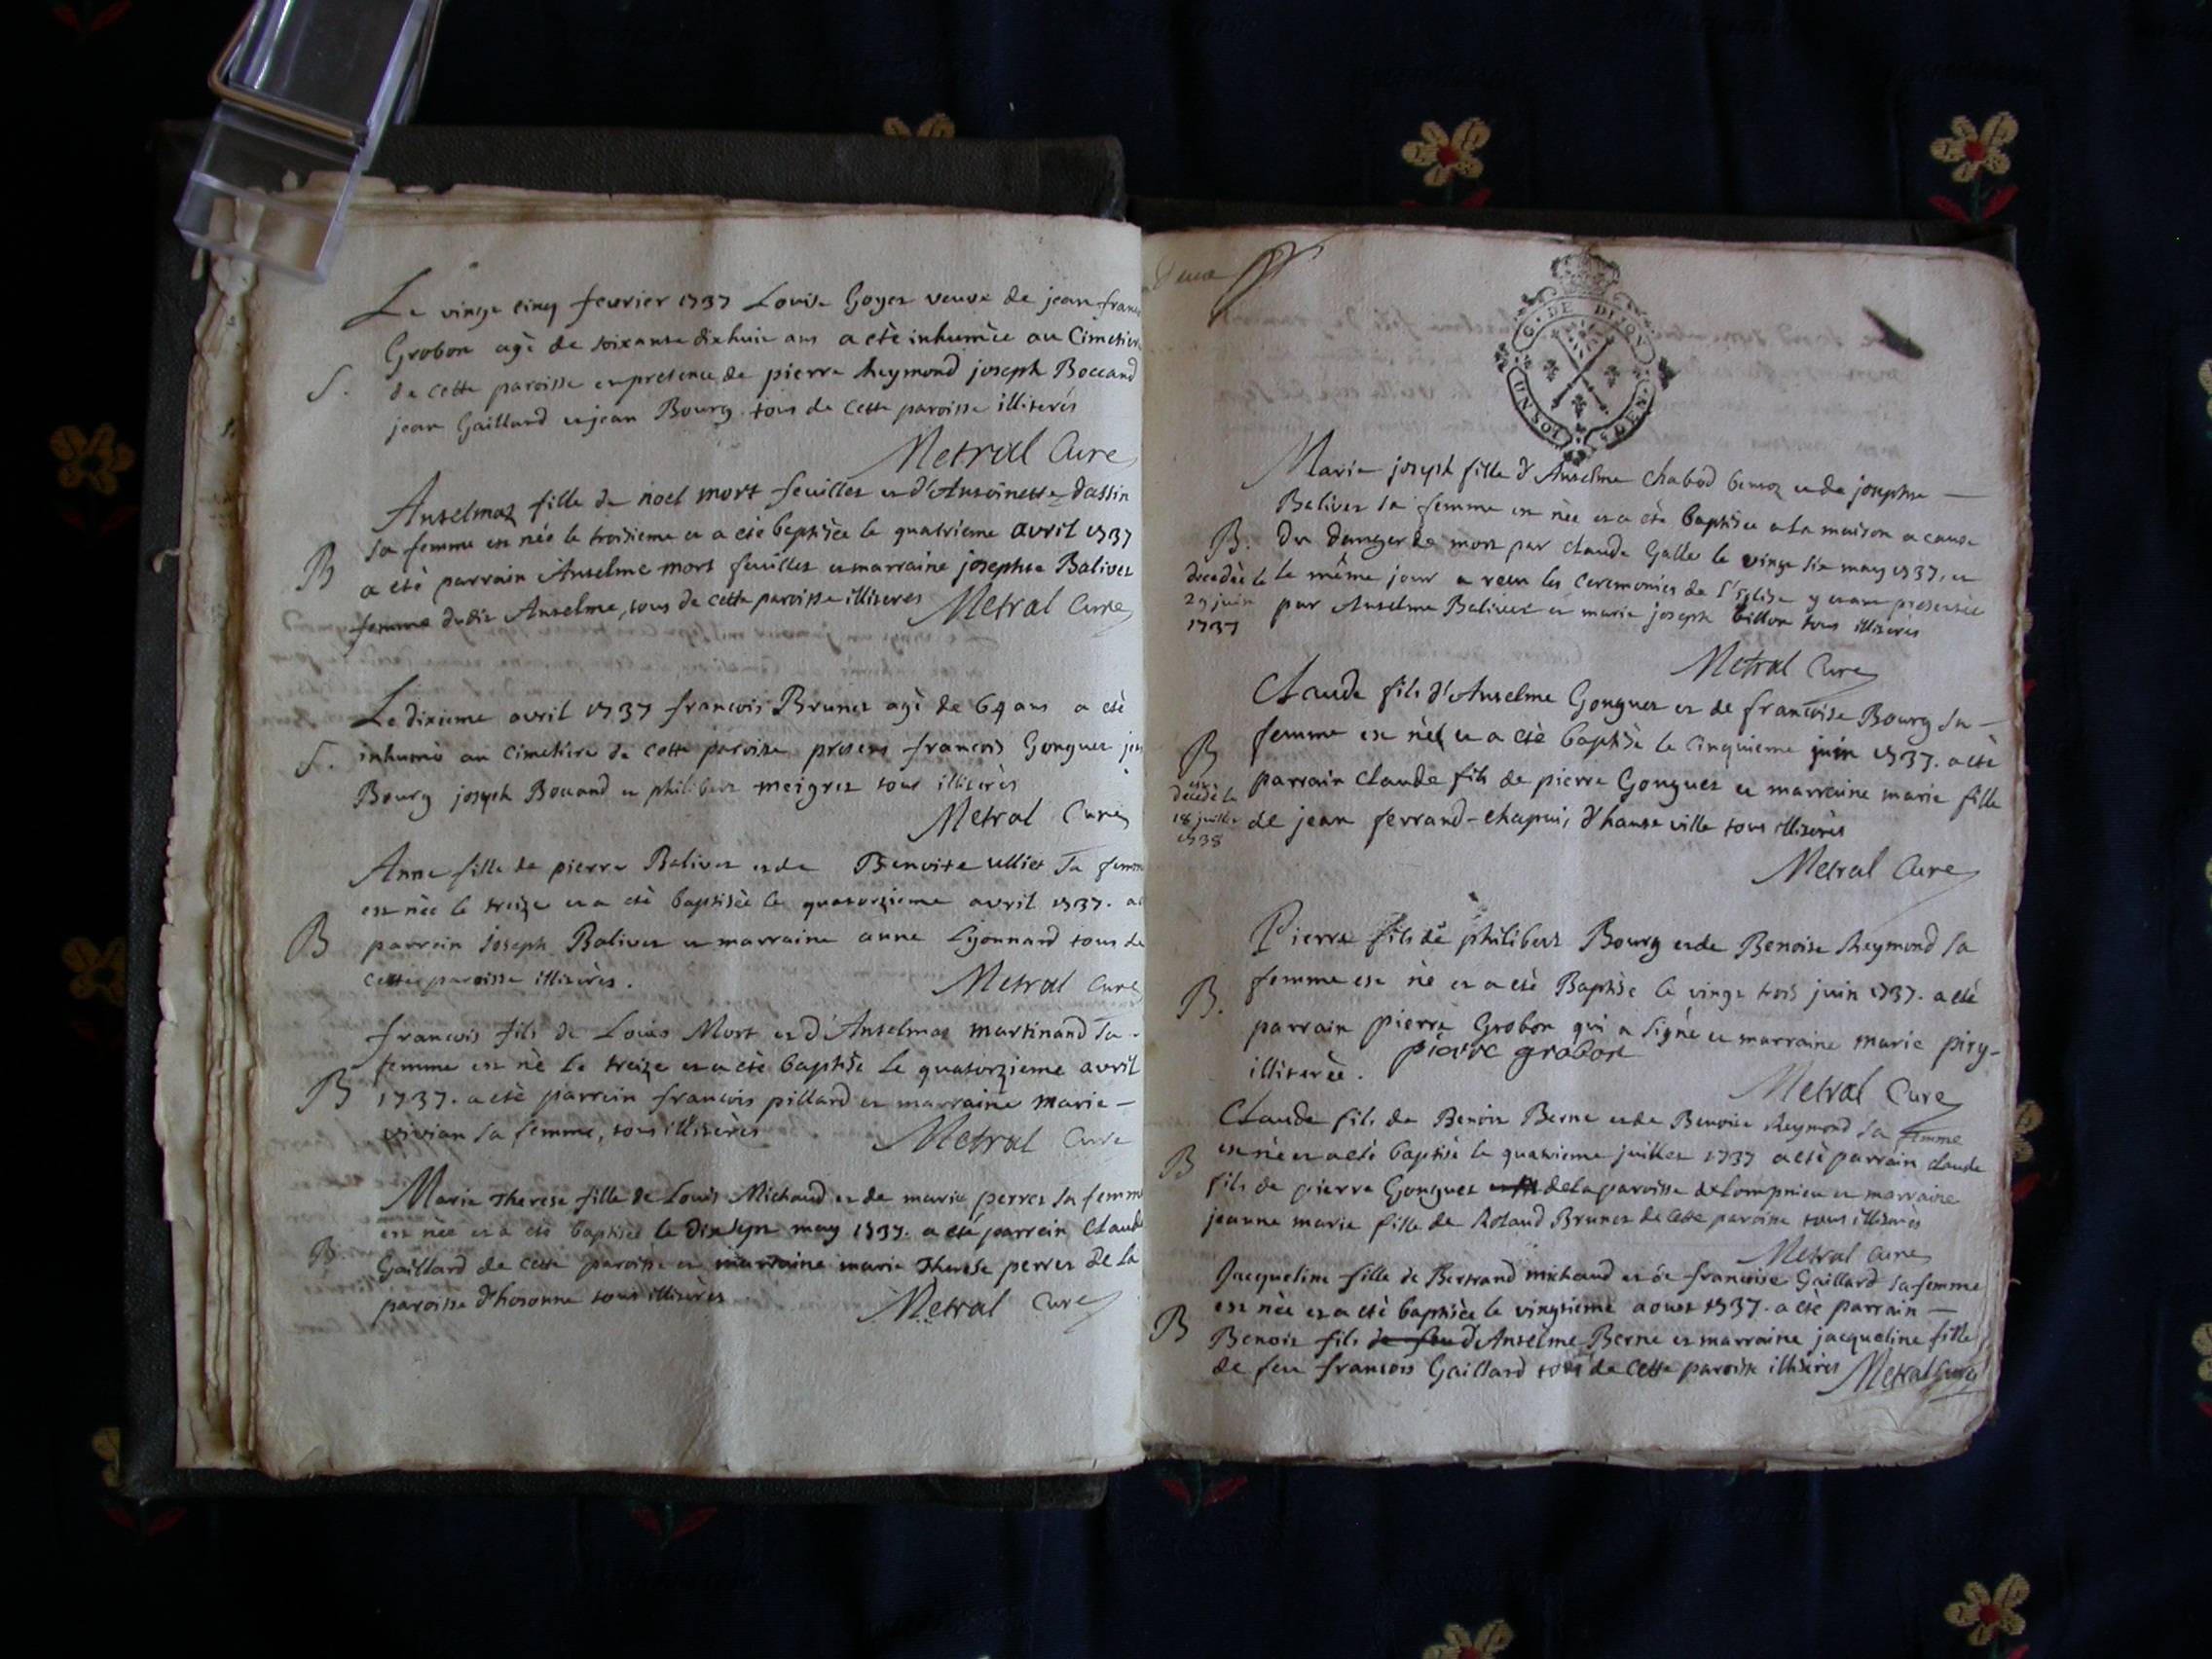 Le vingt cinq fevrier 1737 Louise Goyet veuve de jean fran
Grobon agè de soixante dixhuit ans a etè inhumèe au Cimetiere
S. de cette paroisse en presence de pierre Reymond joseph Boccand
jean Gaillard et jean Bourg tous de cette paroisse illiterés
Metral Curé
Anselmaz fille de noel mort feuillet et d'Antoinette dassin
sa femme est née le troisieme et a eté baptisèe le quatrieme avril 1737
B a etè parrain Anselme mort feuillet et marraine josephte Balivet
femme dudit Anselme, tous de cette paroisse illiteres Metral Curé
Le dixieme avril 1737 francois Brunet agè de 64 ans a etè
S. inhumè au cimetiere de cette paroisse presens francois Gonguet jean
Bourg joseph Bocand et philibert meigret tous illiterès
Metral Curé
Anne fille de pierre Balivet et de Benoite ulliet sa femme
est nèe le treize et a etè baptisèe le quatorzieme avril 1737. a
B parrain Joseph Balivet et marraine anne Lyonnard tous de
cette paroisse illiterès.
Metral Curé
francois fils de Louis Mort et d'Anselmaz martinand sa
femme est nè le treize et a etè baptisè le quatorzieme avril
B 1737. a etè parrein francois pillard et marraine marie -
vivian sa femme, tous illiterès Metral Curé
Marie Therese fille de Louis Michaud et de marie perret sa femme
est nèe et a etè baptisèe le dix sept may 1737. a etè parrein Claude
B. Gaillard de cette paroisse et marraine marie Therese perret de la
paroisse d'hotonne tous illiterès Metral Curé
G. DE DIJON
UN SOL
Marie joseph fille d'Anselme Chabod et de josephte —
Balivet sa femme est nèe et a etè baptisèe a la maison a cause
B. du danger de mort par claude Gallet le vingt six may 1737, et
decedèe le
29 juin
1737
le même jour a receu les ceremonies de l'Eglise y etant presentèe
par Anselme Balivet et marie joseph billon tous illiterès
Metral Curé
Claude fils d'Anselme Gonguet et de francoise Bourg sa -
B femme est nè et a etè baptisè le cinquieme juin 1737. a etè
est
decedè le
18 juillet
1738
parrain claude fils de pierre Gonguet et marraine marie fille
de jean ferrand-chapuis d'hauteville tous illiterès
Metral Curé
Pierre fils de philibert Bourg et de Benoite Reymond sa
B. femme est nè et a etè Baptisè le vingt trois juin 1737. a etè
parrain pierre Grobon qui a signè et marraine marie piry-
illiterèe. pierre grobon
Metral Curé
Claude fils de Benoit Berne et de Benoite Reymond sa femme
B est nè et a etè baptisè le quatrieme juillet 1737 a etè parrain claude
fils de pierre Gonguet de la paroisse de Lompnieu et marraine
jeanne marie fille de Roland Brunet de cette paroisse tous illiterès
Metral Curé
Jacqueline fille de Bertrand michaud et de francoise Gaillard sa femme
est nèe et a etè baptisèe le vingtieme aoust 1737. a etè parrain —
B Benoit fils de feu d'Anselme Berne et marraine jacqueline fille
de feu francois Gaillard tous de cette paroisse illiterès Metral Curé